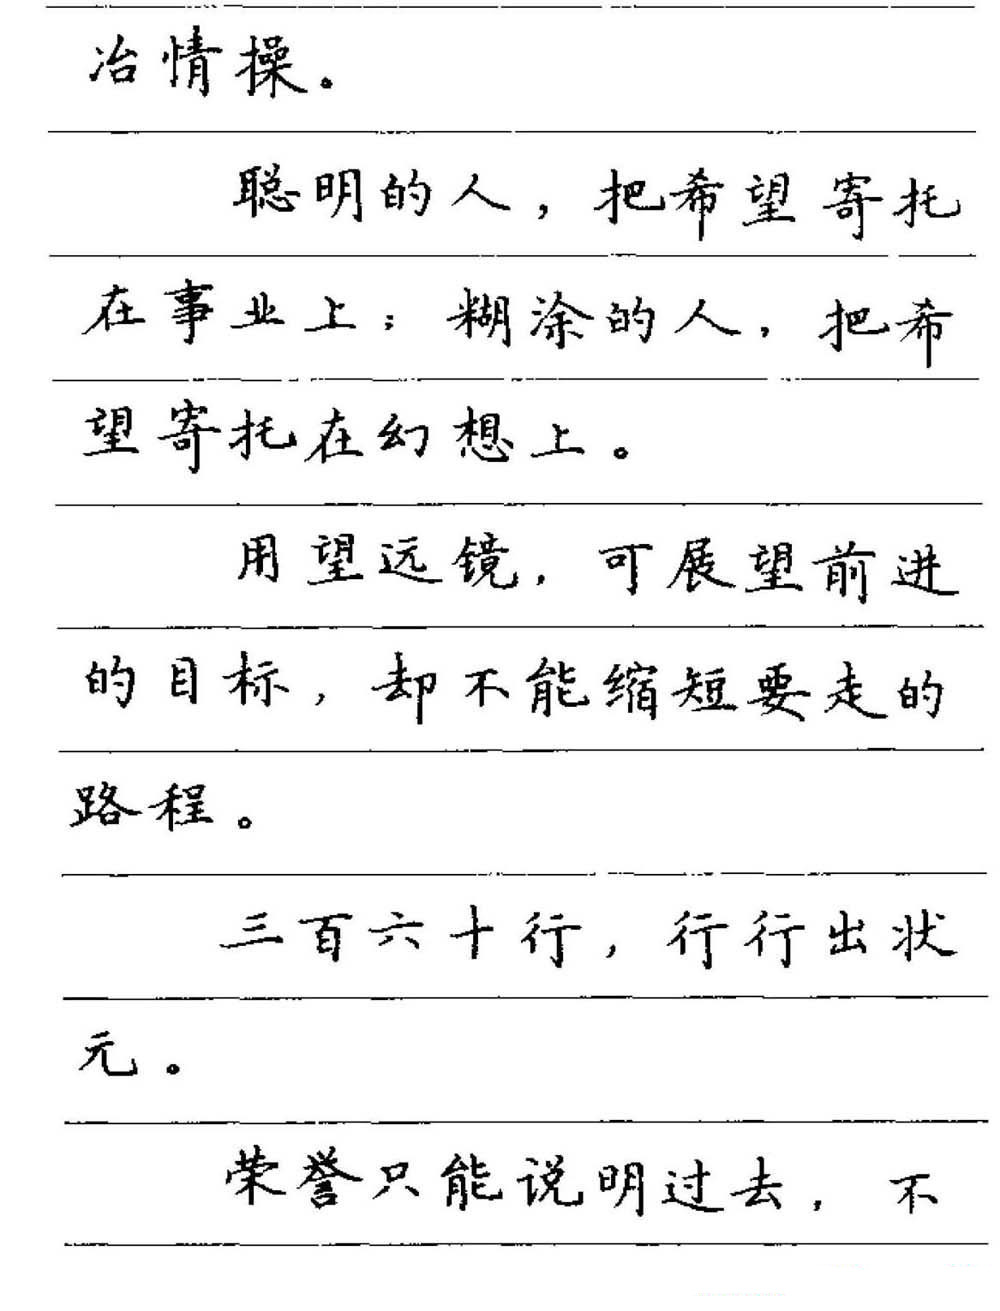 冶情操。
聪明的人，把希望寄托
在事业上；糊涂的人，把希
望寄托在幻想上。
用望远镜，可展望前进
的目标，却不能缩短要走的
路程。
三百六十行，行行出状
元。
荣誉只能说明过去，不